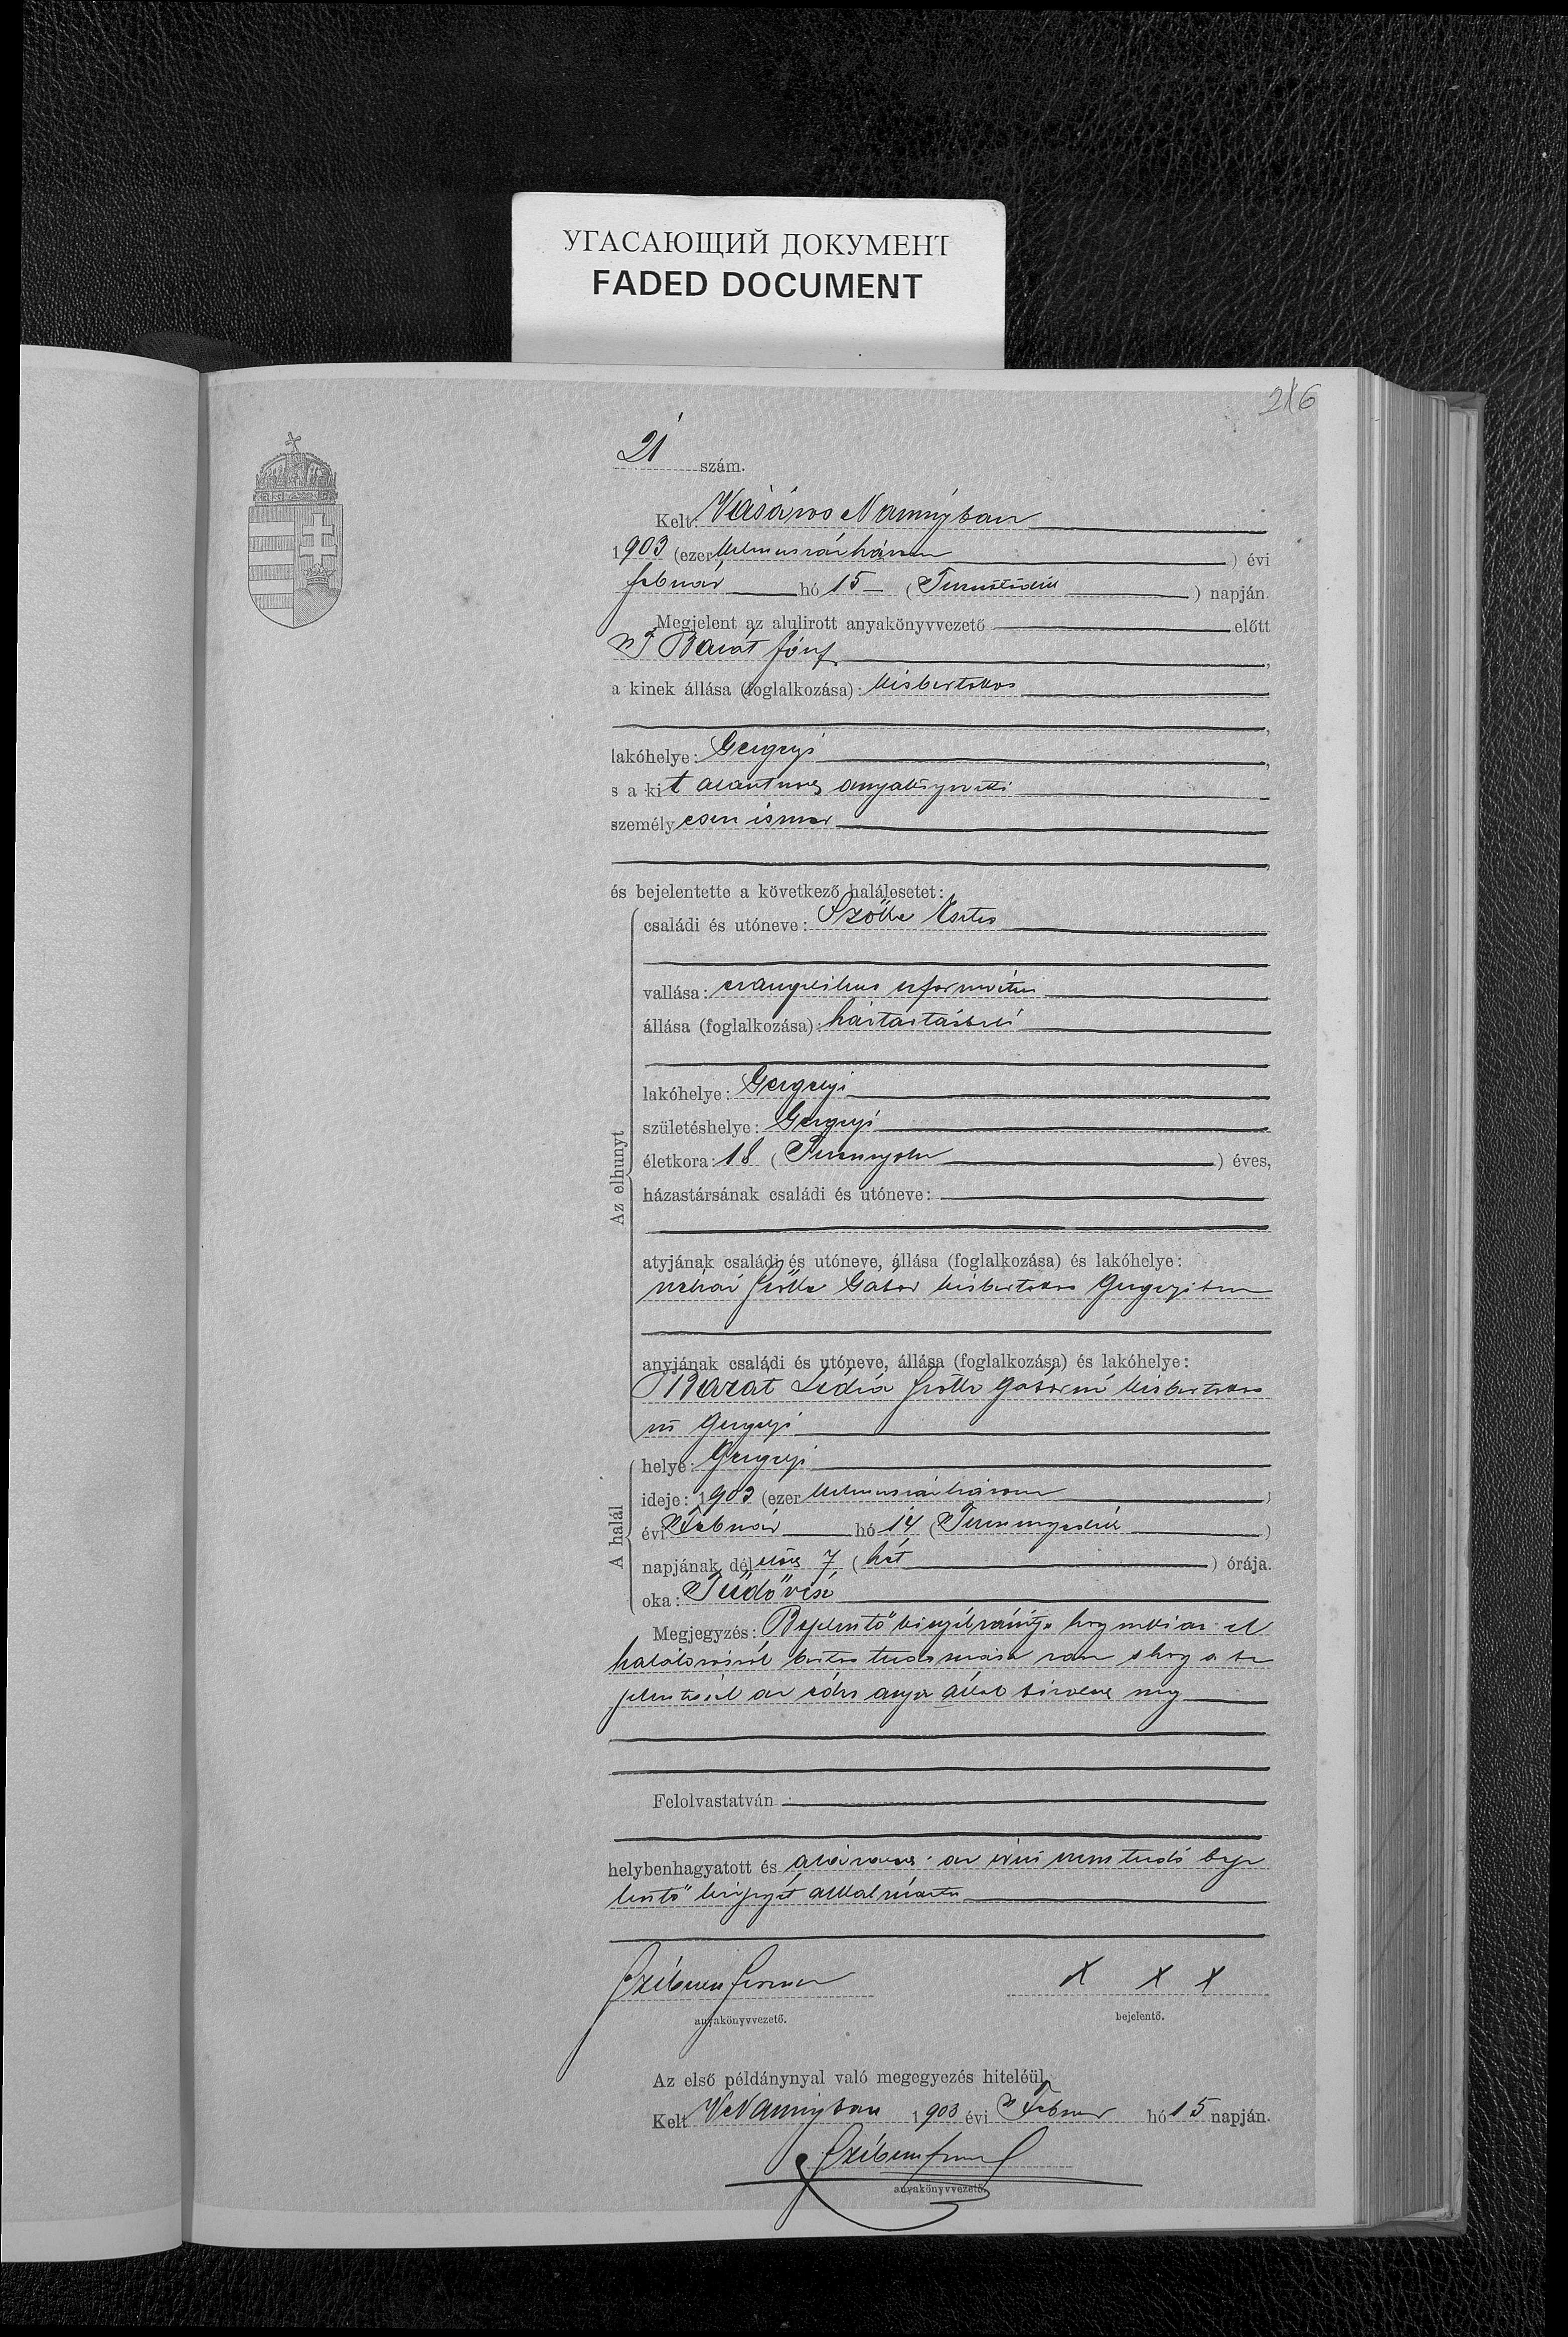 УГАСАЮЩИЙ ДОКУМЕНТ
FADED DOCUMENT
216
21 szám.
Kelt: Vásáros Naményban
1903 (ezer kilenczszázhárom) évi
február hó 15 (Tizenötödik) napján.
Megjelent az alulirott anyakönyvvezető előtt
Barát József,
a kinek állása (foglalkozása): kisbirtokos
lakóhelye: Gergelyi,
s a kit anyakönyvvezető
személyesen ismer
és bejelentette a következő halálesetet:
Az elhunyt
családi és utóneve: Szőke Eszter
vallása: evangelikus református
állása (foglalkozása): háztartásbeli
lakóhelye: Gergelyi
születéshelye: Gergelyi
életkora: 18 (Tizennyolcz) éves,
házastársának családi és utóneve:
atyjának családi és utóneve, állása (foglalkozása) és lakóhelye:
néhai Szőke Gábor kisbirtokos Gergelyiben
anyjának családi és utóneve, állása (foglalkozása) és lakóhelye:
Barát Lidia Szőke Gáborné kisbirtokos
nő Gergelyi
A halál
helye: Gergelyi
ideje: 1903 (ezer kilenczszázhárom)
évi Február hó 14 (Tizennegyedik)
napjának délelőtt 7 (hét) órája.
oka: Tüdővész
Megjegyzés: Bejelentő kinyilvánítja hogy az el
halálozásról biztos tudomása van s hogy a be
jelentéssel az anya által bízatott meg
Felolvastatván
helybenhagyatott és az írni nem tudó beje
lentő kézjegyét alkalmazta
x x x
anyakönyvvezető.
bejelentő.
Az első példánynyal való megegyezés hiteléül,
Kelt VNaményban 1903 évi Február hó 15 napján.
anyakönyvvezető.